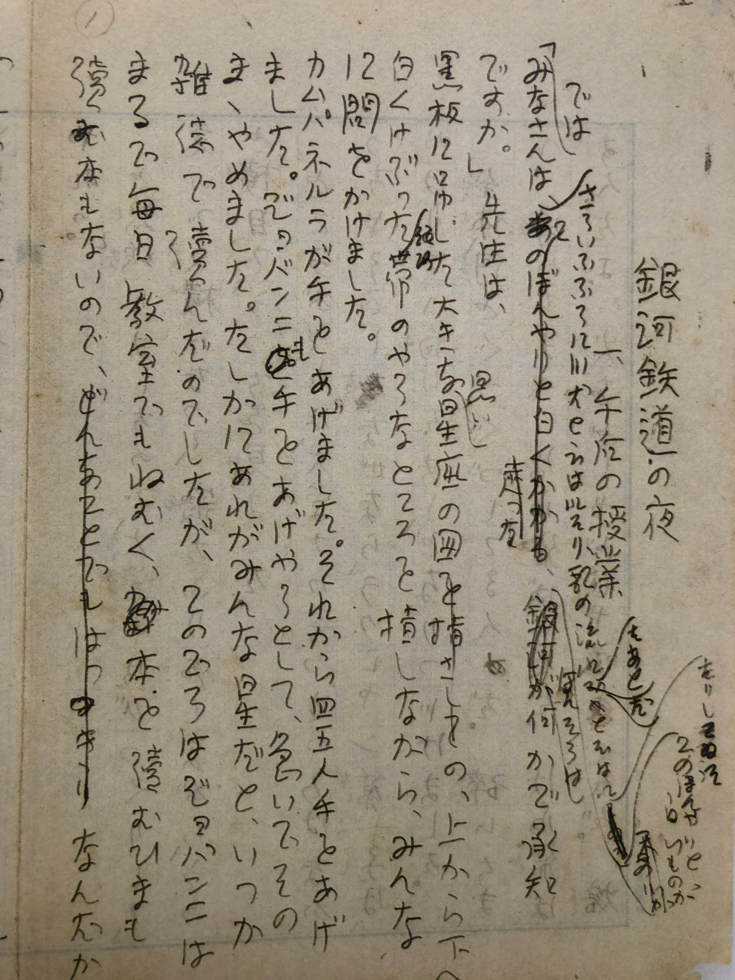 ①
銀河鉄道の夜
一、午后の授業
では
さういふふうに川だと云はれたり、乳の流れたあとだと云はれ
たりしてゐた
このぼんやりと
白いものが
「みなさんは、あのぼんやりと白くかかる、銀河が何かご承知
ほんたうは
ですか。」先生は、
黒い
黒板に吊した大きな星座の図を指さしその、上から下へ
白くけぶった銀河帯のやうなところを指しながら、みんな
に問をかけました。
カムパネルラが手をあげました。それから四五人手をあげ
ました。ジョバンニも手をあげやうとして、急いでその
まゝやめました。たしかにあれがみんな星だと、いつか
雑誌で読んだのでしたが、このごろはジョバンニは
まるで毎日教室でもねむく、本を読むひまも
読む本もないので、どんなことでもはっきりなんだか